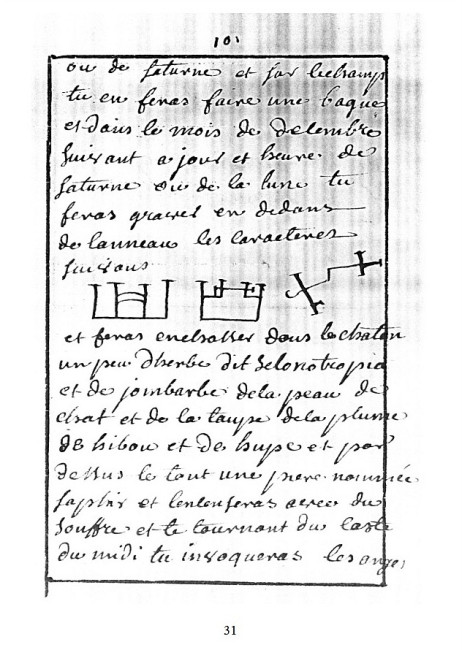 101
ou de saturne et par lechamp
tu en feras faire une bague
et dans le mois de decembre
suivant a jour et heure de
saturne ou de la lune tu
feras graver en dedans
de lanneau les caracteres
suivans
et feras enchasser dans le chaton
un peu dherbe dit helonotropia
et de jombarbe dela peau de
chat et de la taupe dela plume
de hibou et de hupe et par
dessus le tout une piere nommée
saphir et lencenseras avec du
souffre et te tournant du coste
du midi tu invoqueras les anges
31